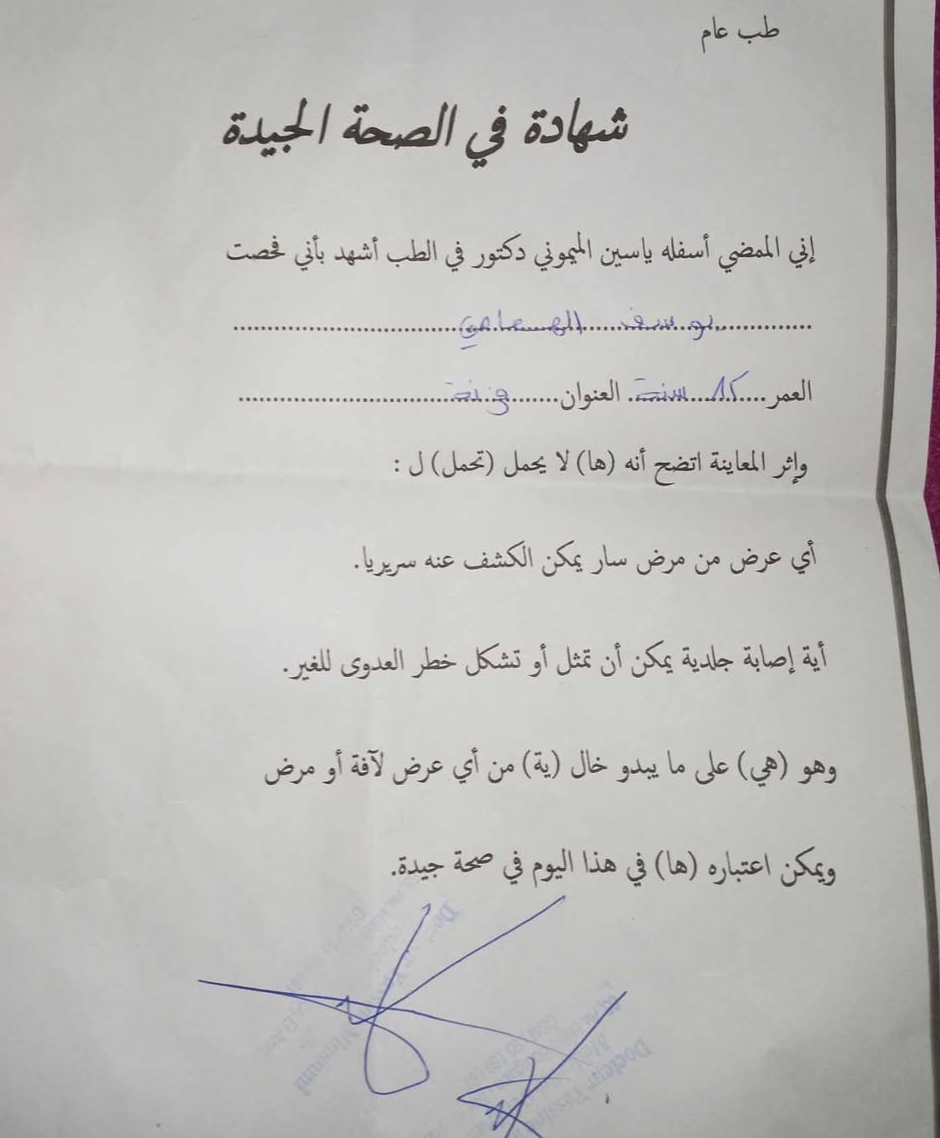 طب عام
شهادة في الصحة الجيدة
إني الممضي أسفله ياسين الميموني دكتور في الطب أشهد بأني فحصت
يوسف
العمر سنة العنوان
وإثر المعاينة اتضح أنه (ها) لا يحمل (تحمل) ل :
أي عرض من مرض سار يمكن الكشف عنه سريريا.
أية إصابة جلدية يمكن أن تمثل أو تشكل خطر العدوى للغير.
وهو (هي) على ما يبدو خال (ية) من أي عرض لآفة أو مرض
ويمكن اعتباره (ها) في هذا اليوم في صحة جيدة.
Docteur